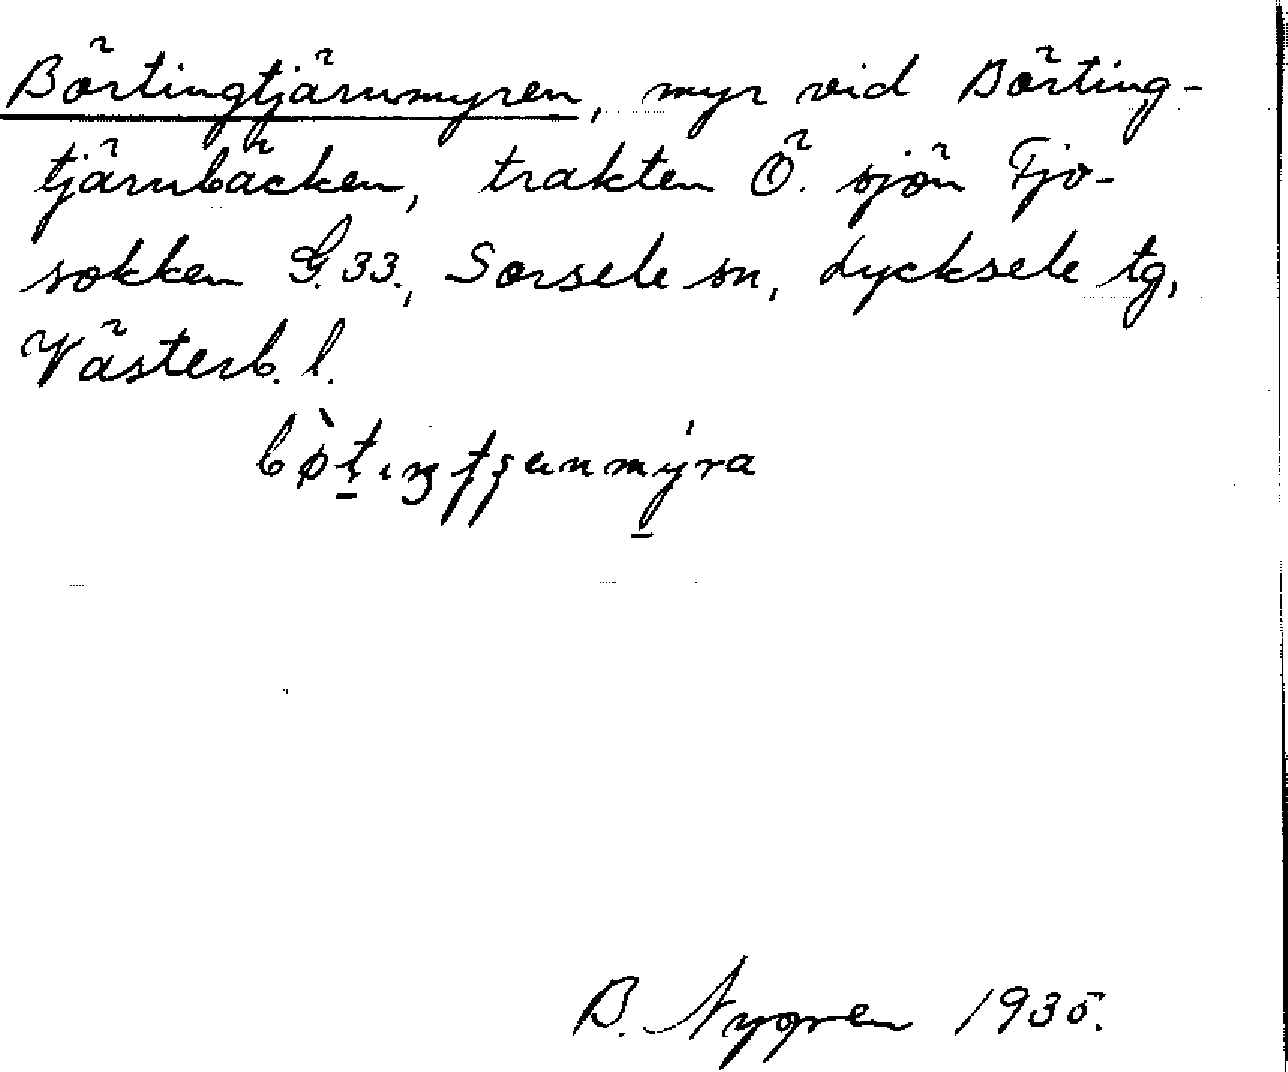 Börtingtjärnmyren, myr vid Börting-
tjärnbäcken, trakten Ö. sjön Tjo-
sokken G.33., Sorsele sn, Lycksele tg,
Västerb. l.
B. Nygren 1935.